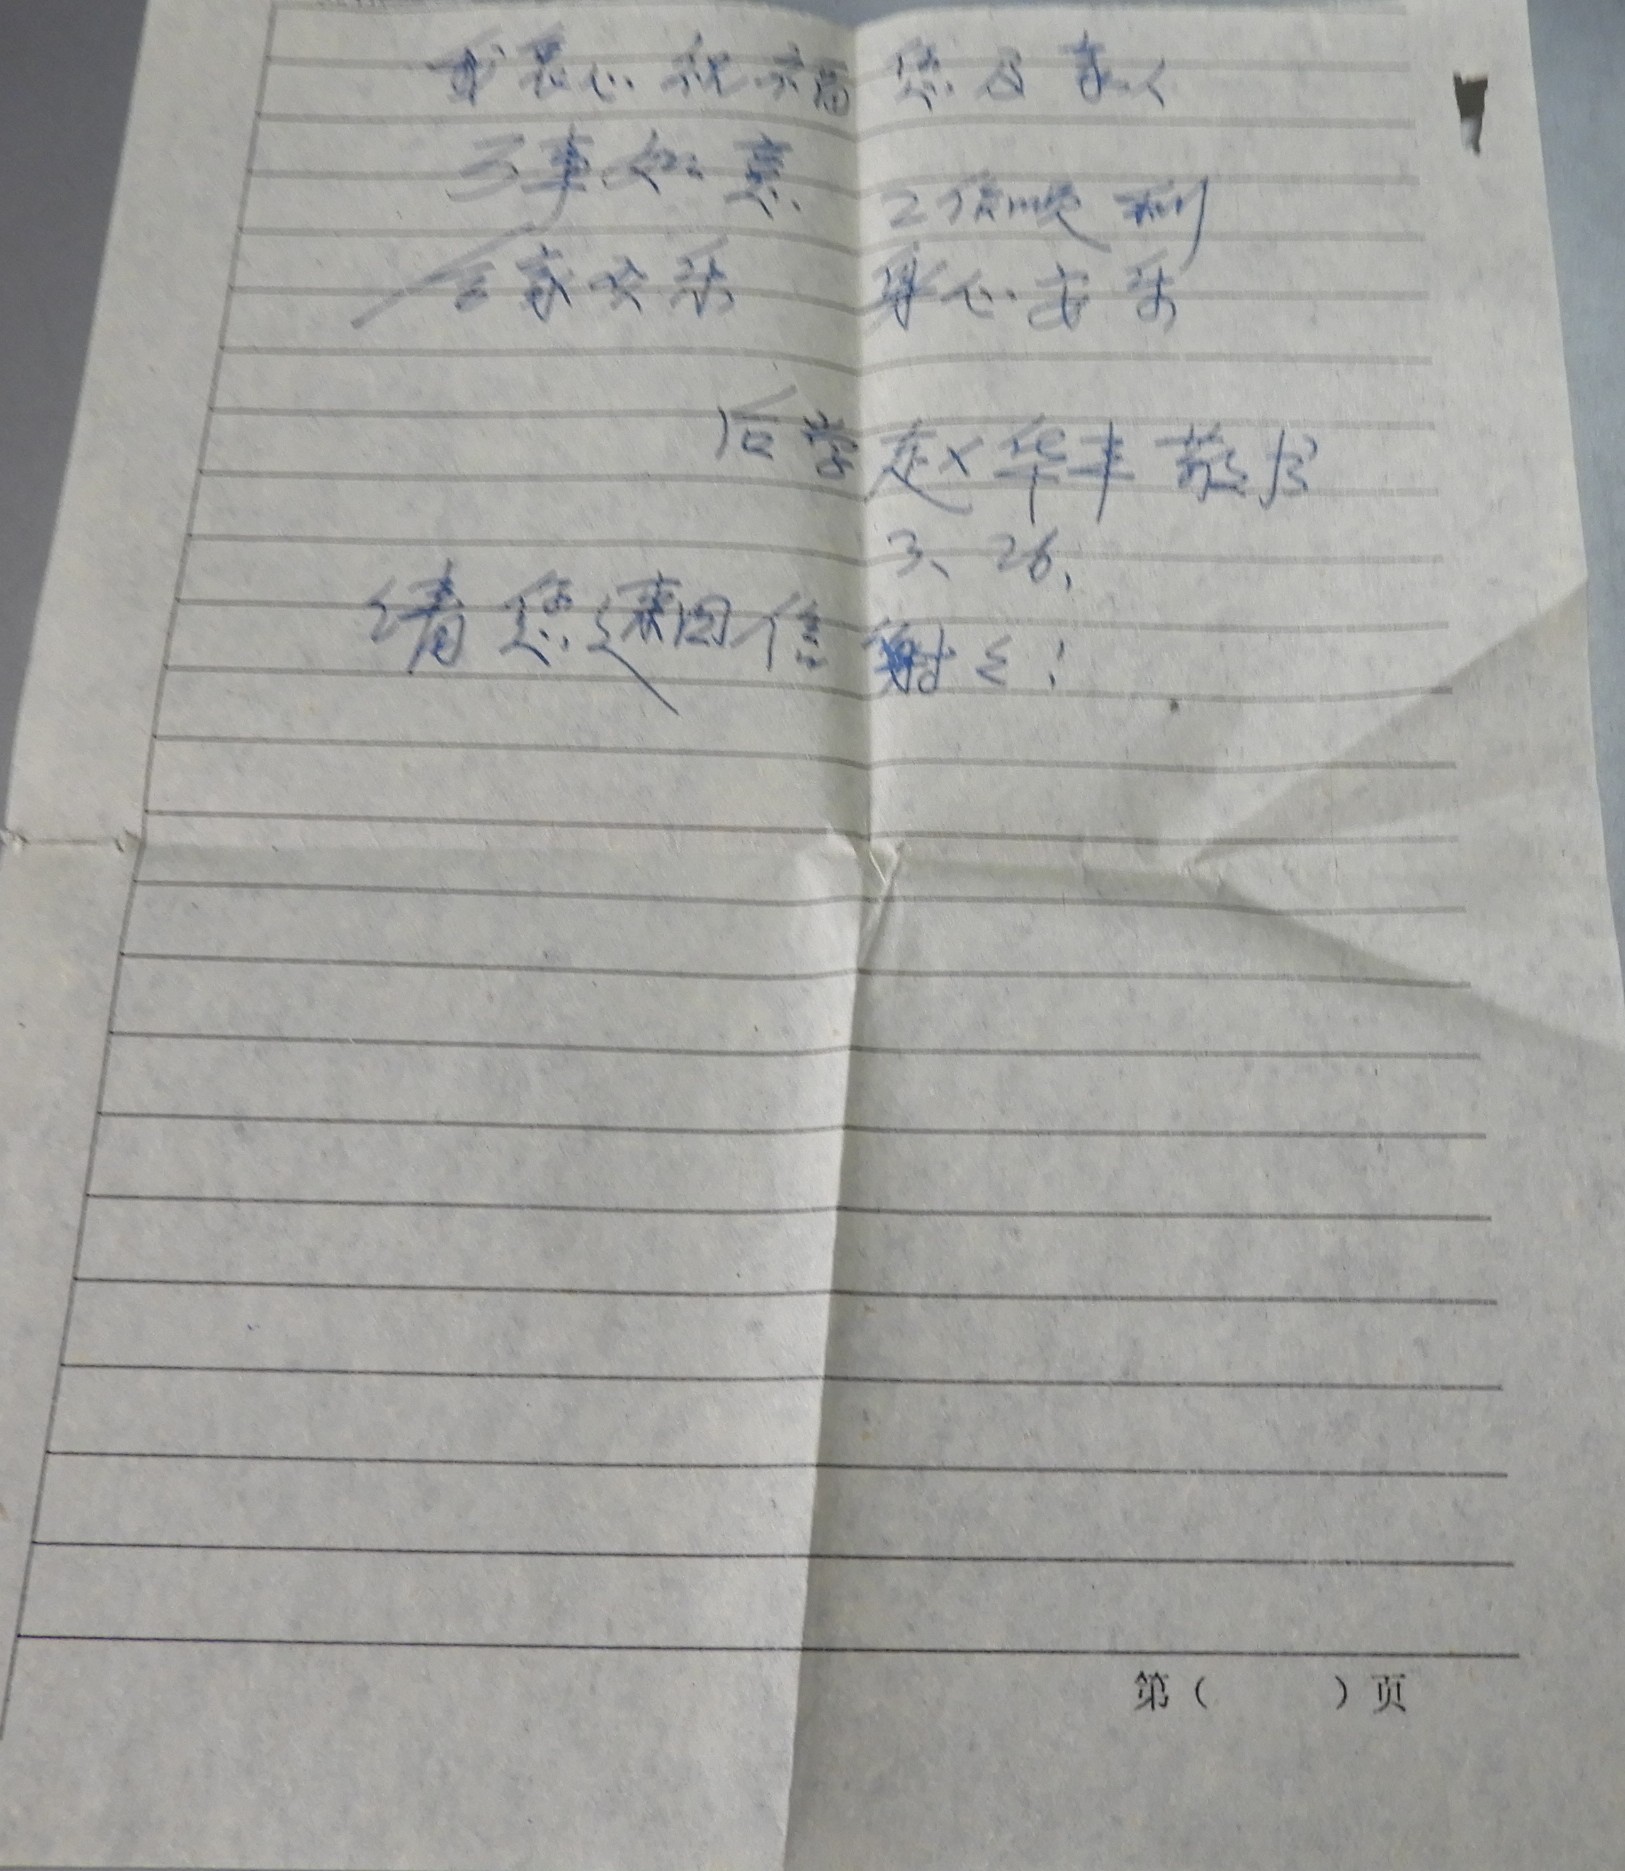 我衷心祝福您及家人
万事如意 工作顺利
合家欢乐 身心安乐
后学赵华丰敬书
3、26、
请您速回信谢谢！
第（ ）页